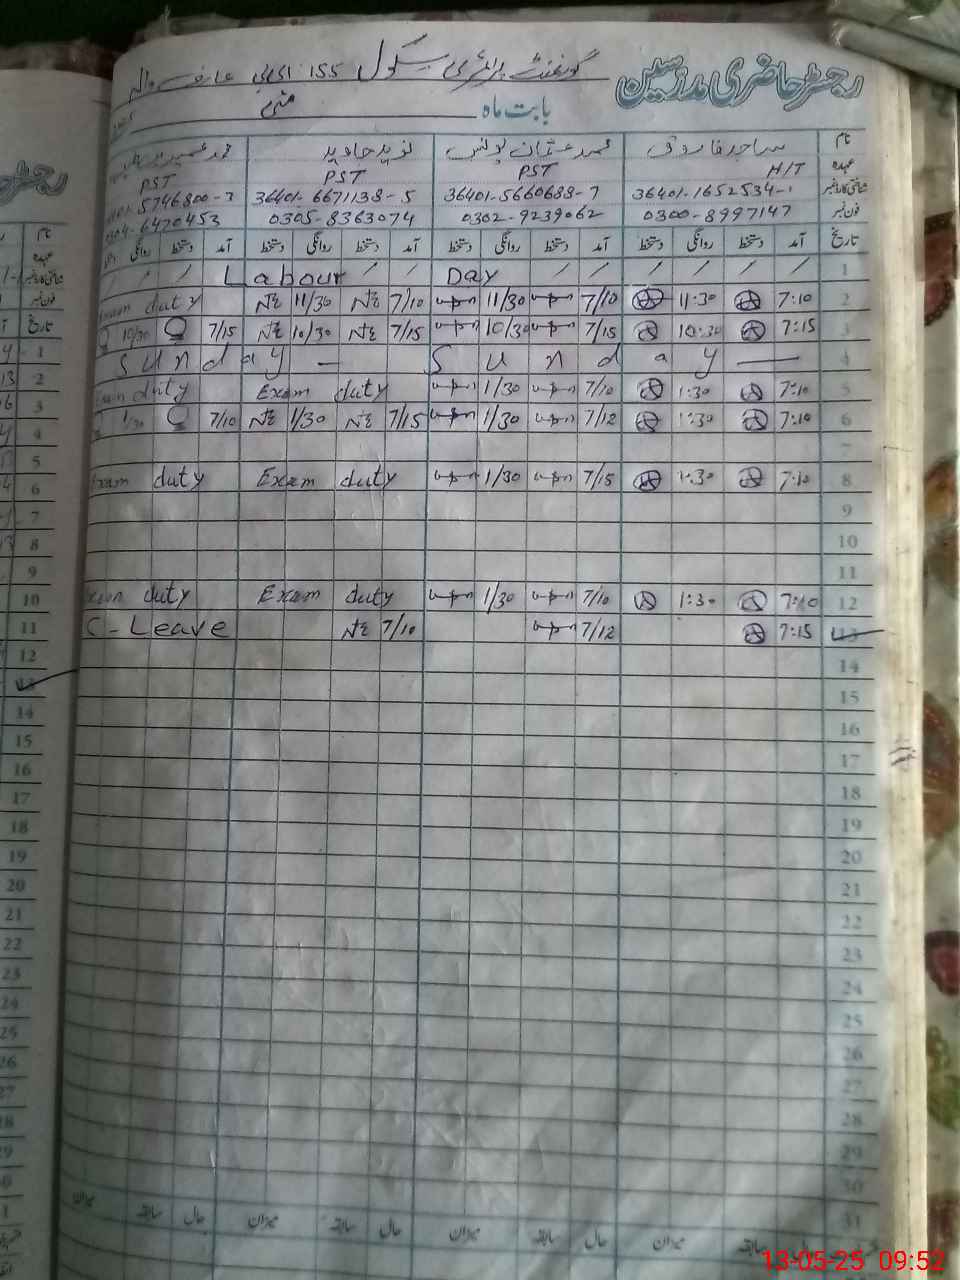 رجسٹر حاضری مدرسین گورنمنٹ پرائمری سکول 155 ای بی عارف والہ
بابت ماہ مئی
نام ساجد فاروق محمد عثمان یونس نوید جاوید محمد
عہدہ H/T PST PST PST
شناختی کارڈ نمبر 36401-1652534-1 36401-5660688-7 36401-6671138-5 5746800-3
فون نمبر 0300-8997147 0302-9239062 0305-8363074 6470453
تاریخ آمد دستخط روانگی دستخط آمد دستخط روانگی دستخط آمد دستخط روانگی دستخط آمد دستخط روانگی
/ / / Labour / / Day / / / / / / 1
Exam duty 11/30 7/10 11/30 7/10 11:30 7:10 2
10/30 7/15 10/30 7/15 10/30 7/15 10:30 7:15 3
Sunday — Sunday — 4
Exam duty Exam duty 1/30 7/10 1:30 7:10 5
1/30 7/10 1/30 7/15 1/30 7/12 1:30 7:10 6
7
Exam duty Exam duty 1/30 7/15 1:30 7:10 8
9
10
11
Exam duty Exam duty 1/30 7/10 1:30 7:10 12
C-Leave 7/10 7/12 7:15 13
14
15
16
17
18
19
20
21
22
23
24
25
26
27
28
29
30
31
حال سابقہ میزان حال سابقہ میزان حال سابقہ میزان حال سابقہ میزان
نام
عہدہ
شناختی کارڈ نمبر
فون نمبر
تاریخ
1
2
3
4
5
6
7
8
9
10
11
12
13
14
15
16
17
18
19
20
21
22
23
24
25
26
27
28
29
13-05-25 09:52